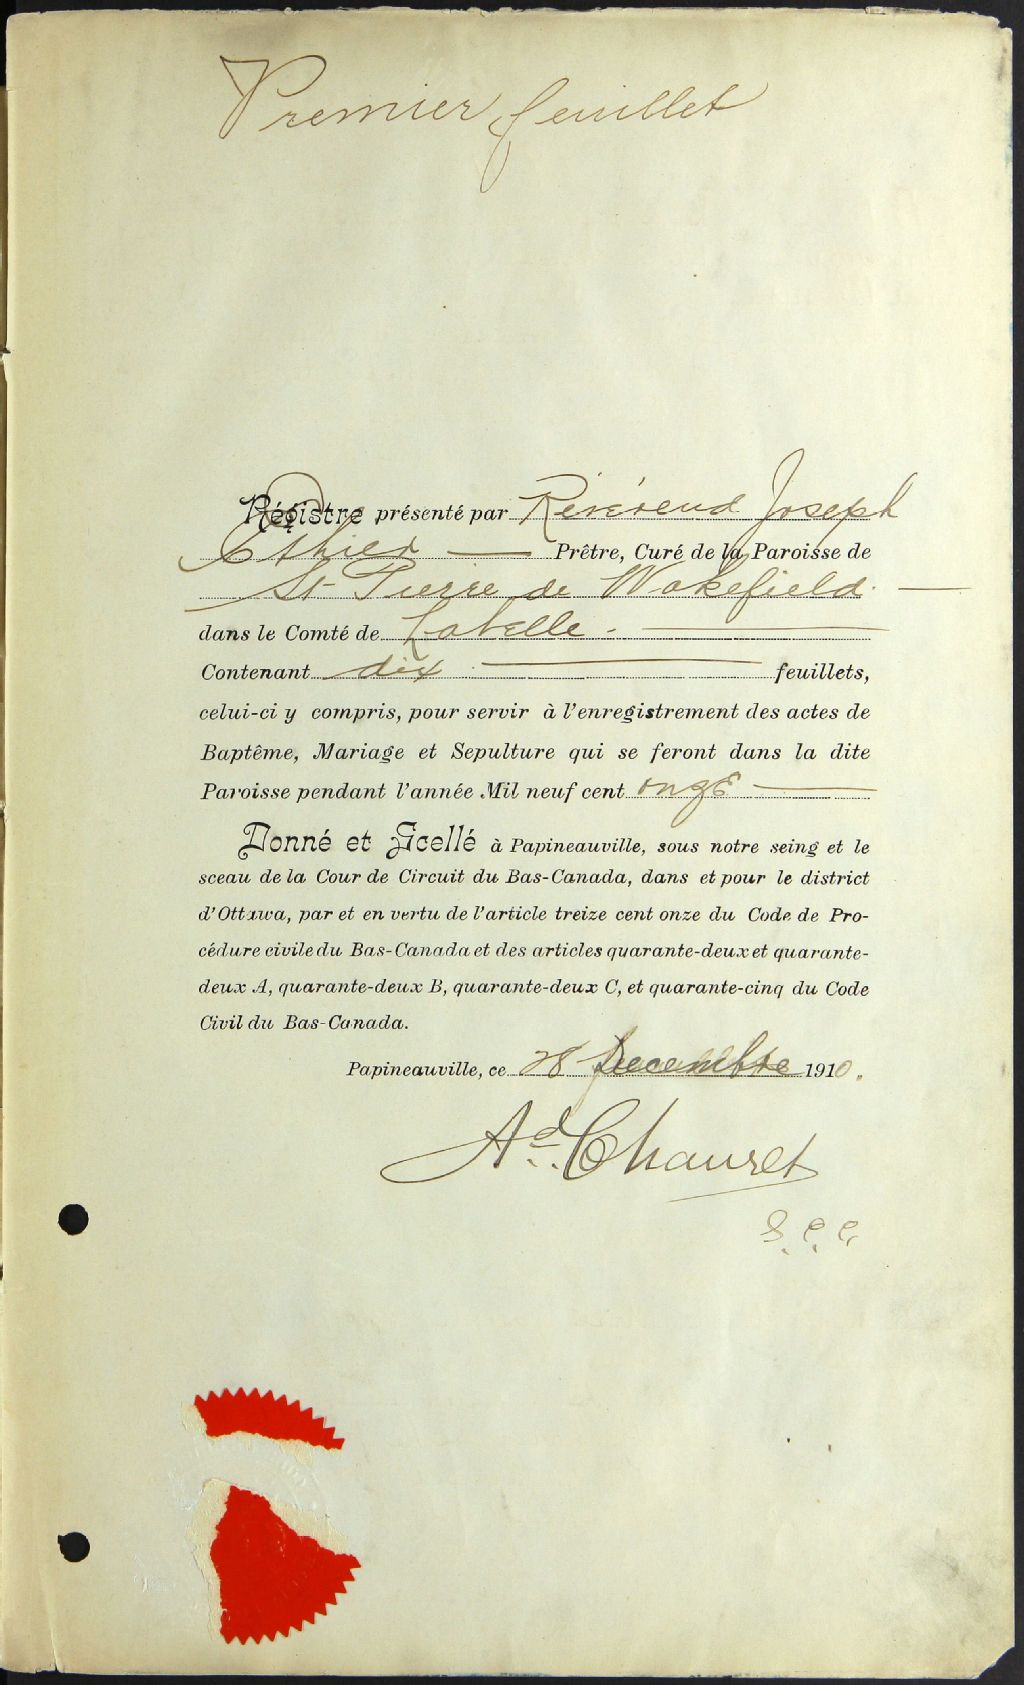 Premier feuillet
Régistre présenté par Révérend Joseph
Ethier Prêtre, Curé de la Paroisse de
St-Pierre de Wakefield.
dans le Comté de Labelle.
Contenant dix feuillets,
celui-ci y compris, pour servir à l'enregistrement des actes de
Baptême, Mariage et Sepulture qui se feront dans la dite
Paroisse pendant l'année Mil neuf cent onze
Donné et Scellé à Papineauville, sous notre seing et le
sceau de la Cour de Circuit du Bas-Canada, dans et pour le district
d'Ottawa, par et en vertu de l'article treize cent onze du Code de Pro-
cédure civile du Bas-Canada et des articles quarante-deux et quarante-
deux A, quarante-deux B, quarante-deux C, et quarante-cinq du Code
Civil du Bas-Canada.
Papineauville, ce 28 Decembre 1910.
Ad. Chauret
G.C.C.